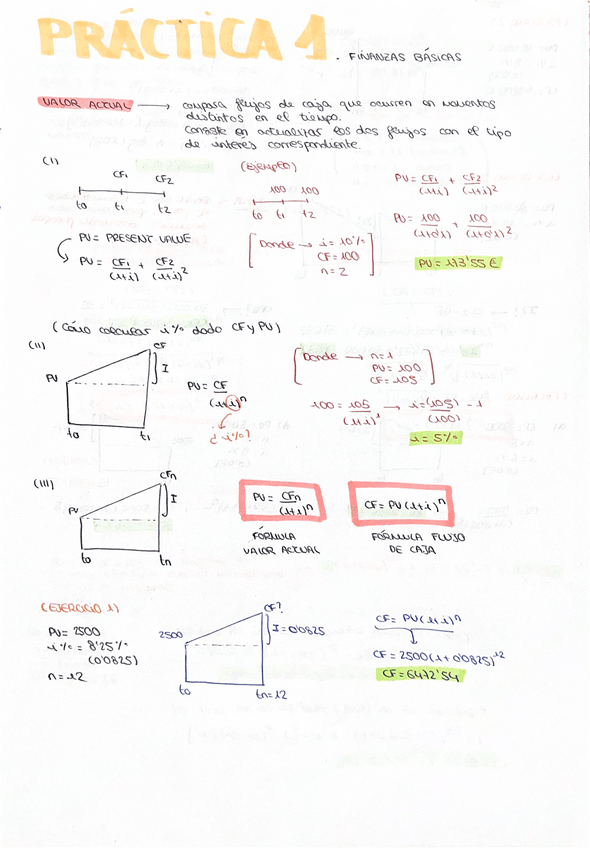 PRÁCTICA 1. FINANZAS BÁSICAS
VALOR ACTUAL → compara flujos de caja que ocurren en momentos
distintos en el tiempo.
Consiste en actualizar los dos flujos con el tipo
de interés correspondiente.
(I)
CF1 CF2
t0 t1 t2
PV = PRESENT VALUE
PV = CF1/(1+i) + CF2/(1+i)²
(EJEMPLO)
100 100
t0 t1 t2
[Donde → i = 10%
CF = 100
n = 2]
PV = CF1/(1+i) + CF2/(1+i)²
PV = 100/(1+0'1) + 100/(1+0'1)²
PV = 173'55 €
(Cómo calcular i% dado CF y PV)
(II)
CF
I
PV
t0 t1
PV = CF/(1+i)ⁿ
¿i%?
[Donde → n = 1
PV = 100
CF = 105]
100 = 105/(1+i)¹ → i = (105)/(100) - 1
i = 5%
(III)
CFn
I
PV
t0 tn
PV = CFn/(1+i)ⁿ
FÓRMULA
VALOR ACTUAL
CF = PV(1+i)ⁿ
FÓRMULA FLUJO
DE CAJA
(EJERCICIO 1)
PV = 2500
i% = 8'25%
(0'0825)
n = 12
CF?
2500
I = 0'0825
t0 tn = 12
CF = PV(1+i)ⁿ
CF = 2500(1+0'0825)¹²
CF = 6472'54